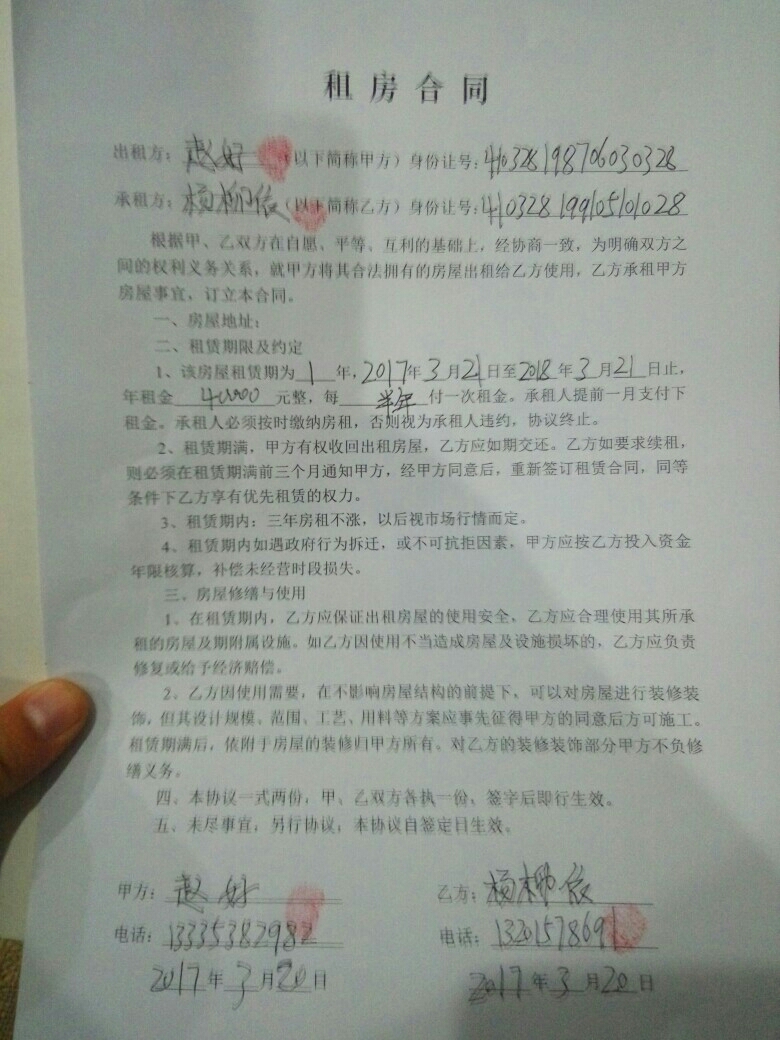 租房合同
出租方：赵好（以下简称甲方）身份让号：410328198706030328
承租方：杨柳依（以下简称乙方）身份让号：410328199105101028
根据甲、乙双方在自愿、平等、互利的基础上，经协商一致，为明确双方之
间的权利义务关系，就甲方将其合法拥有的房屋出租给乙方使用，乙方承租甲方
房屋事宜，订立本合同。
一、房屋地址：
二、租赁期限及约定
1、该房屋租赁期为1年，2017年3月21日至2018年3月21日止，
年租金 元整，每半年付一次租金。承租人提前一月支付下
租金。承租人必须按时缴纳房租，否则视为承租人违约，协议终止。
2、租赁期满，甲方有权收回出租房屋，乙方应如期交还。乙方如要求续租，
则必须在租赁期满前三个月通知甲方，经甲方同意后，重新签订租赁合同，同等
条件下乙方享有优先租赁的权力。
3、租赁期内：三年房租不涨，以后视市场行情而定。
4、租赁期内如遇政府行为拆迁，或不可抗拒因素，甲方应按乙方投入资金
年限核算，补偿未经营时段损失。
三、房屋修缮与使用
1、在租赁期内，乙方应保证出租房屋的使用安全，乙方应合理使用其所承
租的房屋及期附属设施。如乙方因使用不当造成房屋及设施损坏的，乙方应负责
修复或给予经济赔偿。
2、乙方因使用需要，在不影响房屋结构的前提下，可以对房屋进行装修装
饰，但其设计规模、范围、工艺、用料等方案应事先征得甲方的同意后方可施工。
租赁期满后，依附于房屋的装修归甲方所有。对乙方的装修装饰部分甲方不负修
缮义务。
四、本协议一式两份，甲、乙双方各执一份，签字后即行生效。
五、未尽事宜，另行协议，本协议自签定日生效。
甲方：赵好 乙方：杨柳依
电话：13335382982 电话：13201578691
2017年3月20日 2017年3月20日